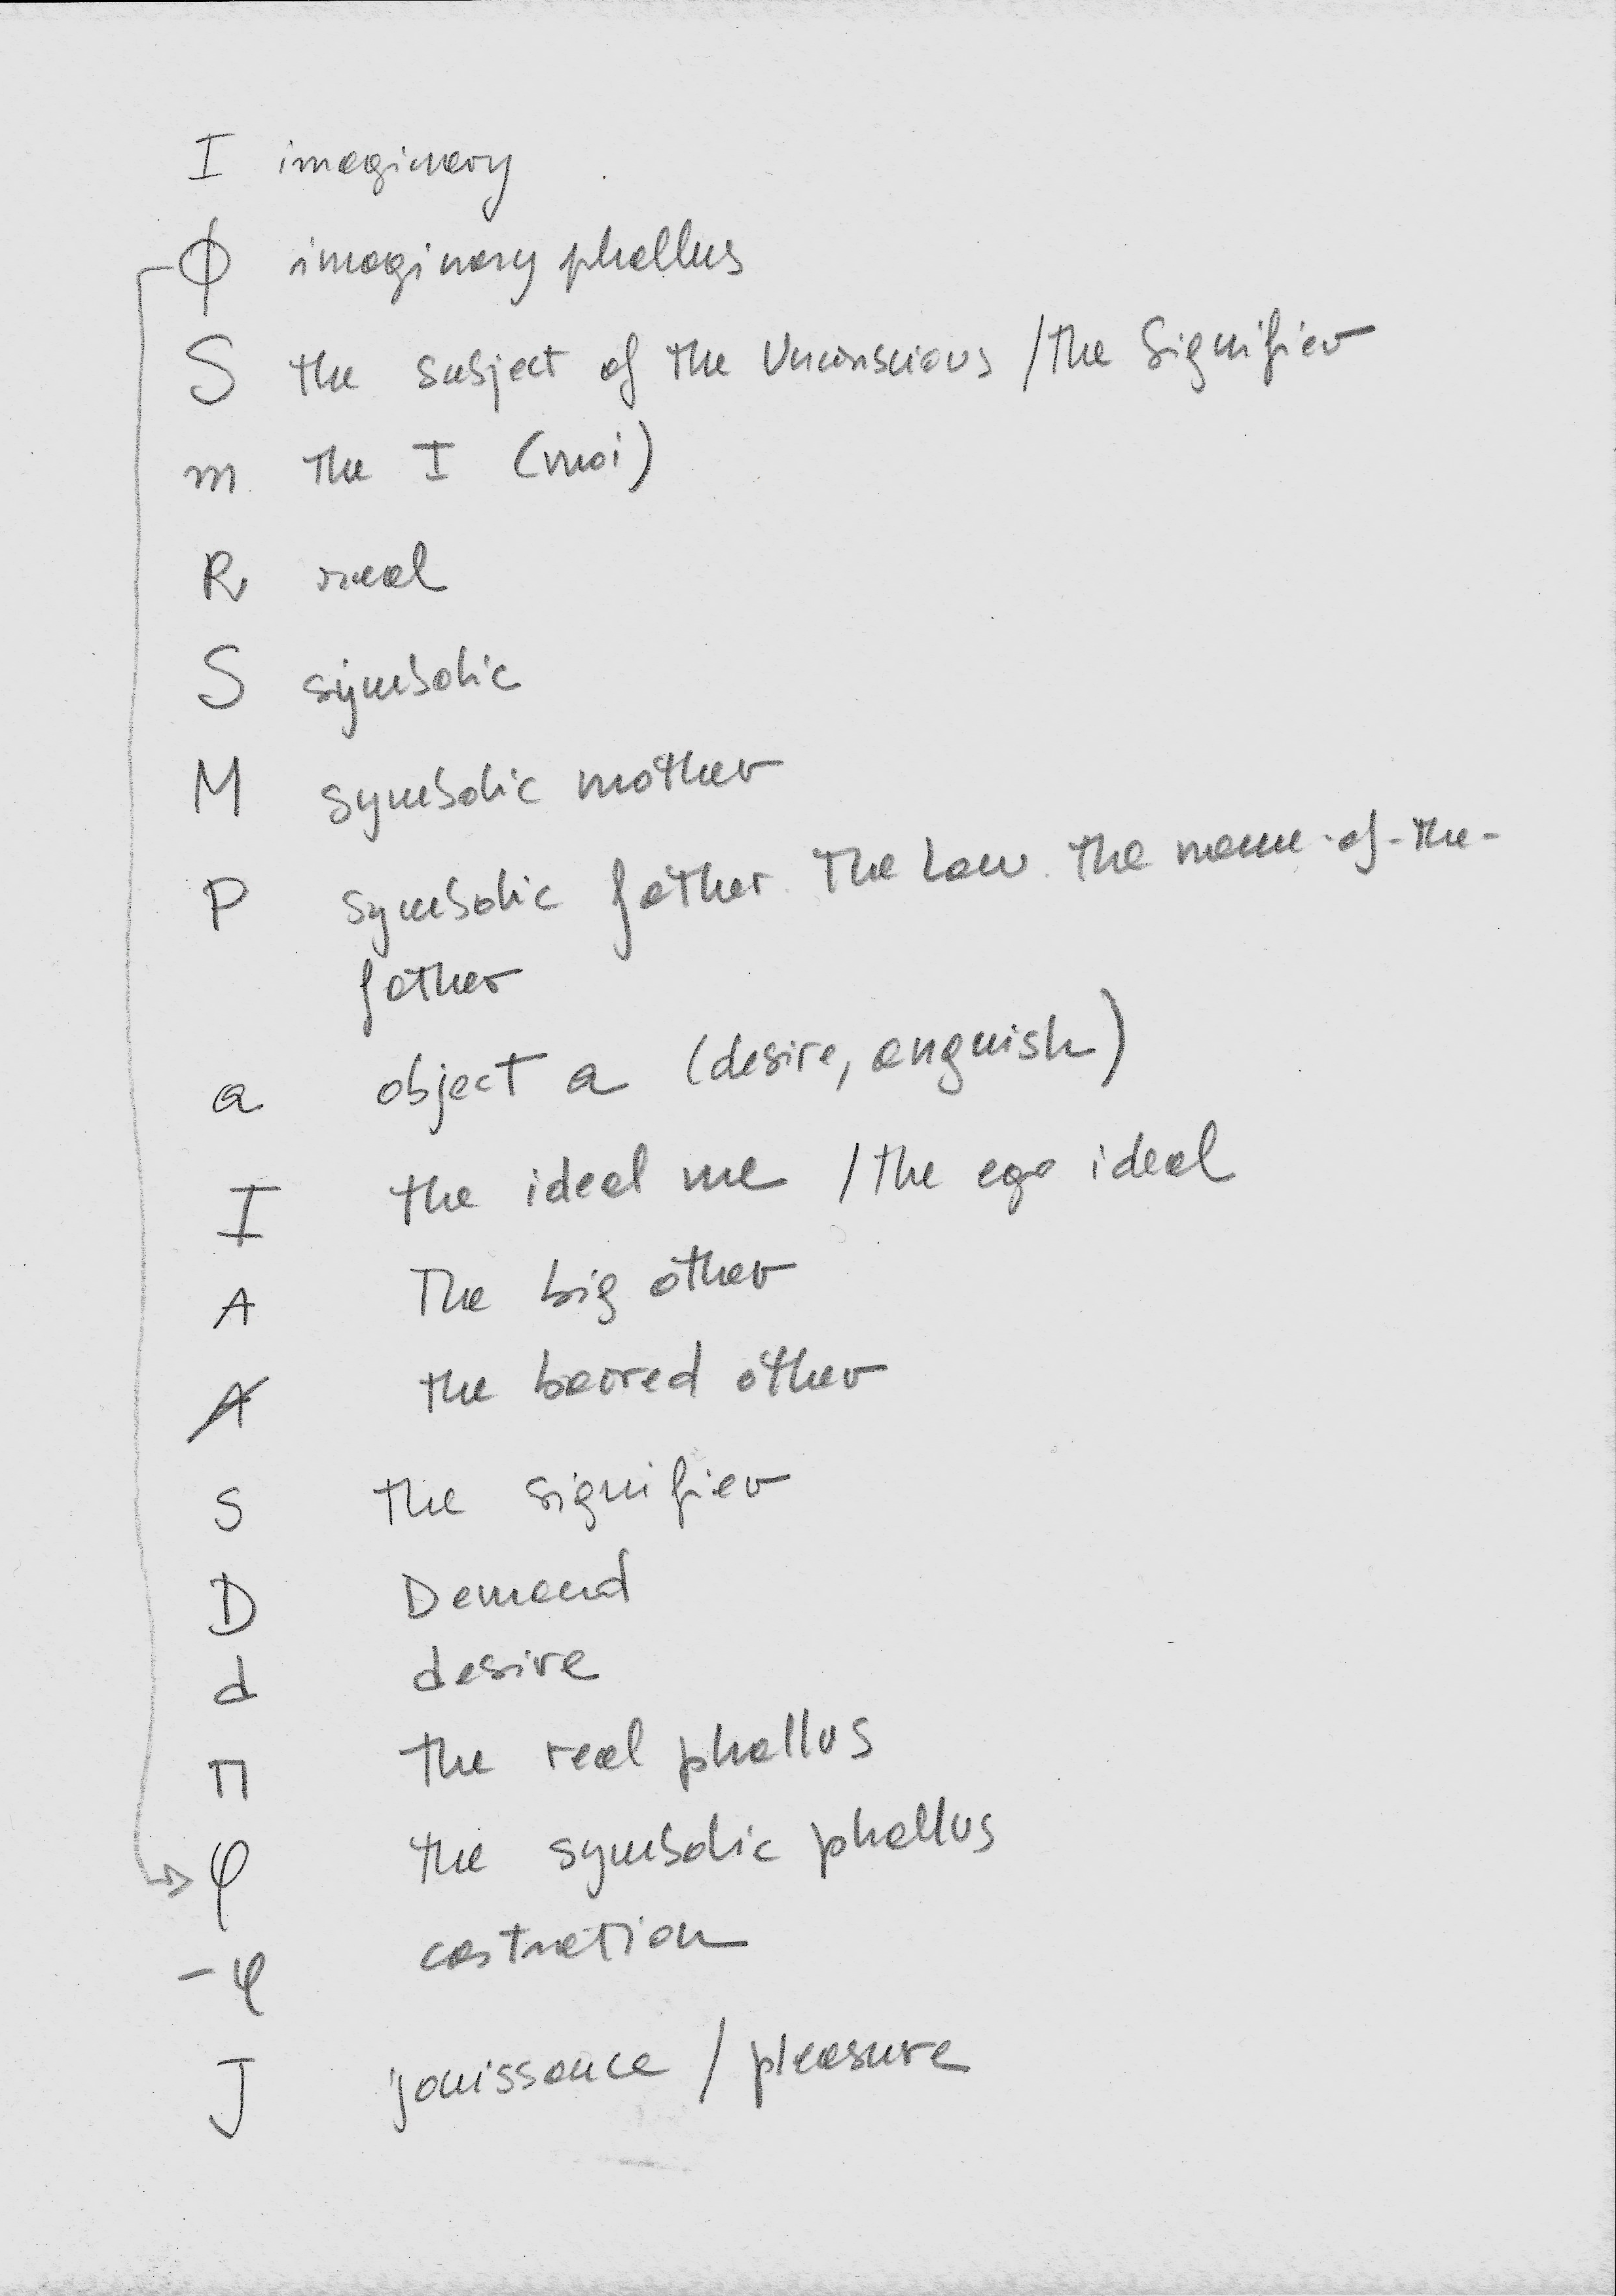 I imaginary
ϕ imaginary phallus
S the subject of the Unconscious / the Signifier
m the I (moi)
R real
S symbolic
M symbolic mother
P symbolic father. The Law. The name-of-the-
father
a object a (desire, anguish)
I the ideal me / the ego ideal
A The big other
A̸ the barred other
S the signifier
D Demand
d desire
π the real phallus
φ the symbolic phallus
-φ castration
J jouissance / pleasure